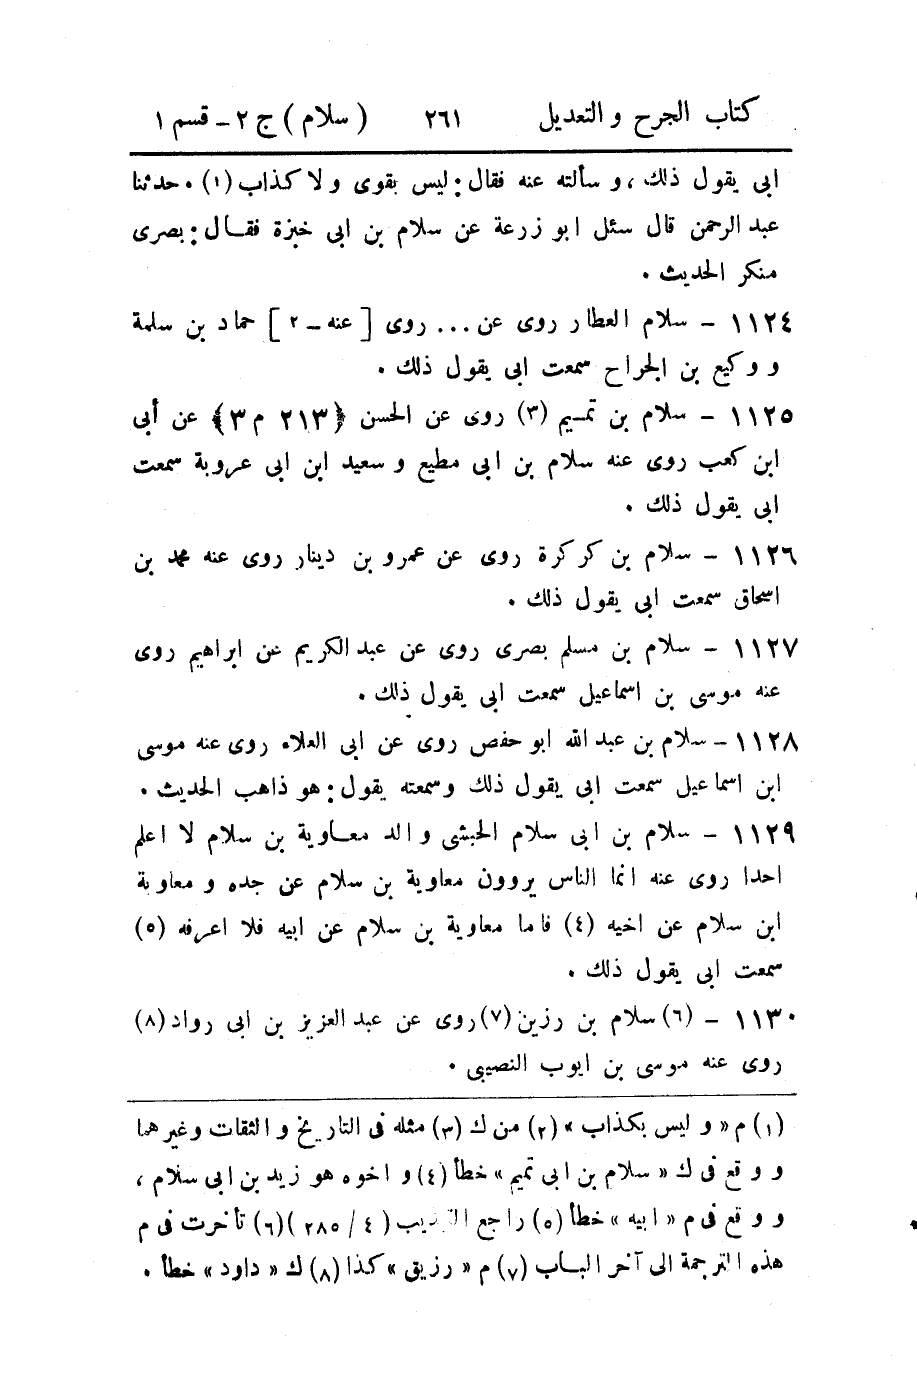 كتاب الجرح و التعديل ٢٦١ ( سلام ) ج ٢ - قسم ١
ابى يقول ذلك ، و سألته عنه فقال : ليس بقوى ولا كذاب (١) . حدثنا
عبد الرحمن قال سئل ابو زرعة عن سلام بن ابى خبزة فقال : بصرى
منكر الحديث .
١١٢٤ - سلام العطار روى عن ... روى [ عنه - ٢ ] حماد بن سلمة
و وكيع بن الجراح سمعت ابى يقول ذلك .
١١٢٥ - سلام بن تميم (٣) روى عن الحسن ﴿٢١٣ م ٣﴾ عن أبى
ابن كعب روى عنه سلام بن ابى مطيع و سعيد ابن ابى عروبة سمعت
ابى يقول ذلك .
١١٢٦ - سلام بن كركرة روى عن عمرو بن دينار روى عنه محمد بن
اسحاق سمعت ابى يقول ذلك .
١١٢٧ - سلام بن مسلم بصرى روى عن عبد الكريم عن ابراهيم روى
عنه موسى بن اسماعيل سمعت ابى يقول ذلك .
١١٢٨ - سلام بن عبد الله ابو حفص روى عن ابى العلاء روى عنه موسى
ابن اسماعيل سمعت ابى يقول ذلك وسمعته يقول : هو ذاهب الحديث .
١١٢٩ - سلام بن ابى سلام الحبشى والد معاوية بن سلام لا اعلم
احدا روى عنه انما الناس يروون معاوية بن سلام عن جده و معاوية
ابن سلام عن اخيه (٤) فاما معاوية بن سلام عن ابيه فلا اعرفه (٥)
سمعت ابى يقول ذلك .
١١٣٠ - (٦) سلام بن رزين (٧) روى عن عبد العزيز بن ابى رواد (٨)
روى عنه موسى بن ايوب النصيبى .
(١) م « و ليس بكذاب » (٢) من ك (٣) مثله فى التاريخ و الثقات وغيرهما
و وقع فى ك « سلام بن ابى تميم » خطأ (٤) و اخوه هو زيد بن ابى سلام ،
و وقع فى م « ابيه » خطأ (٥) راجع التهذيب ( ٤ / ٢٨٥ ) (٦) تأخرت فى م
هذه الترجمة الى آخر الباب (٧) م « رزيق » كذا (٨) ك « داود » خطأ .